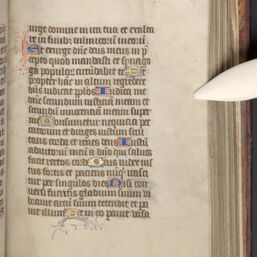 urge domine in ira tua et exalta
re in finibus inimicorum meorum.
Et exurge domine deus meus in p
cepto quod mandasti et synago
ga populorum circumdabit te Et
propter hanc in altum regredere
dominus iudicat populos Iudica me
domine secundum iusticiam meam et
secundum innocentiam meam super
me Consumetur nequicia pec
catorum et diriges iustum scru
tans corda et renes deus Iustum
adiutorium meum a domino qui saluos
facit rectos corde Deus iudex ius
tus fortis et paciens nunquid irasci
tur per singulos dies Nisi con
uersi fueritis gladium suum vi
brauit arcum suum tetendit et pa
rauit illum Et in eo parauit vasa